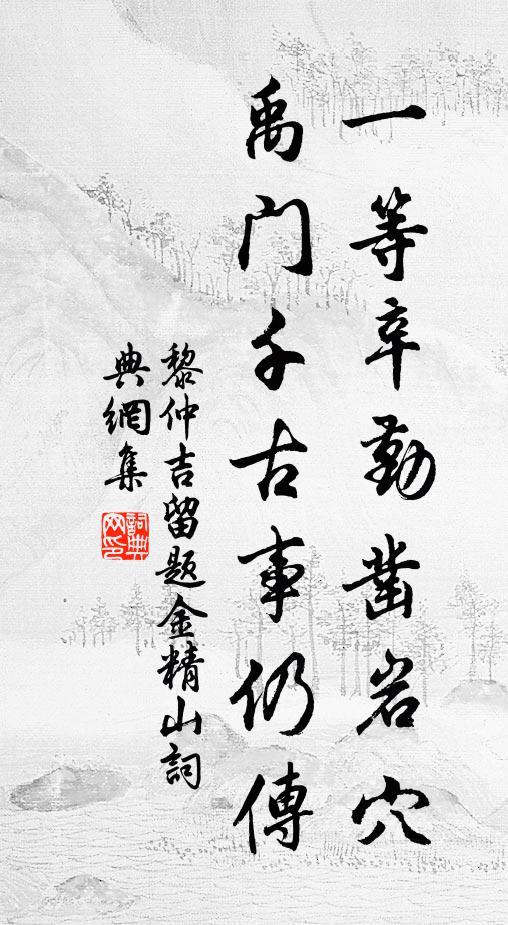 一等辛勤凿岩穴
禹门千古事仍傳
黎仲吉留题金精山詞
典網集
詞典网印